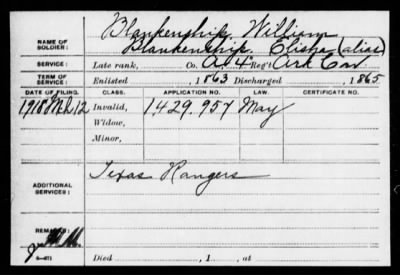 NAME OF SOLDIER: Blankenship, William
Blankenship, Elisha (alias)
SERVICE: Late rank, Co. A, 4" Reg't Ark Cav
TERM OF SERVICE: Enlisted , 1863 Discharged , 1865
DATE OF FILING. CLASS. APPLICATION NO. LAW. CERTIFICATE NO.
1918 Mch 12 Invalid, 1,429,957 May
Widow,
Minor,
ADDITIONAL SERVICES: Texas Rangers
REMARKS:
6—671 Died , 1 , at